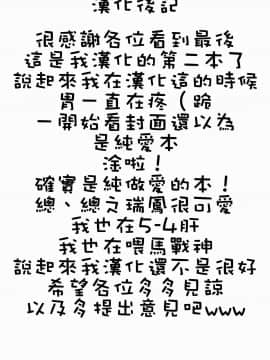 漢化後記
很感謝各位看到最後
這是我漢化的第二本了
說起來我在漢化這的時候
胃一直在疼（蹄
一開始看封面還以為
是純愛本
淦啦！
確實是純做愛的本！
總、總之瑞鳳很可愛
我也在5-4肝
我也在喂馬戰神
說起來我漢化還不是很好
希望各位多多見諒
以及多提出意見吧www